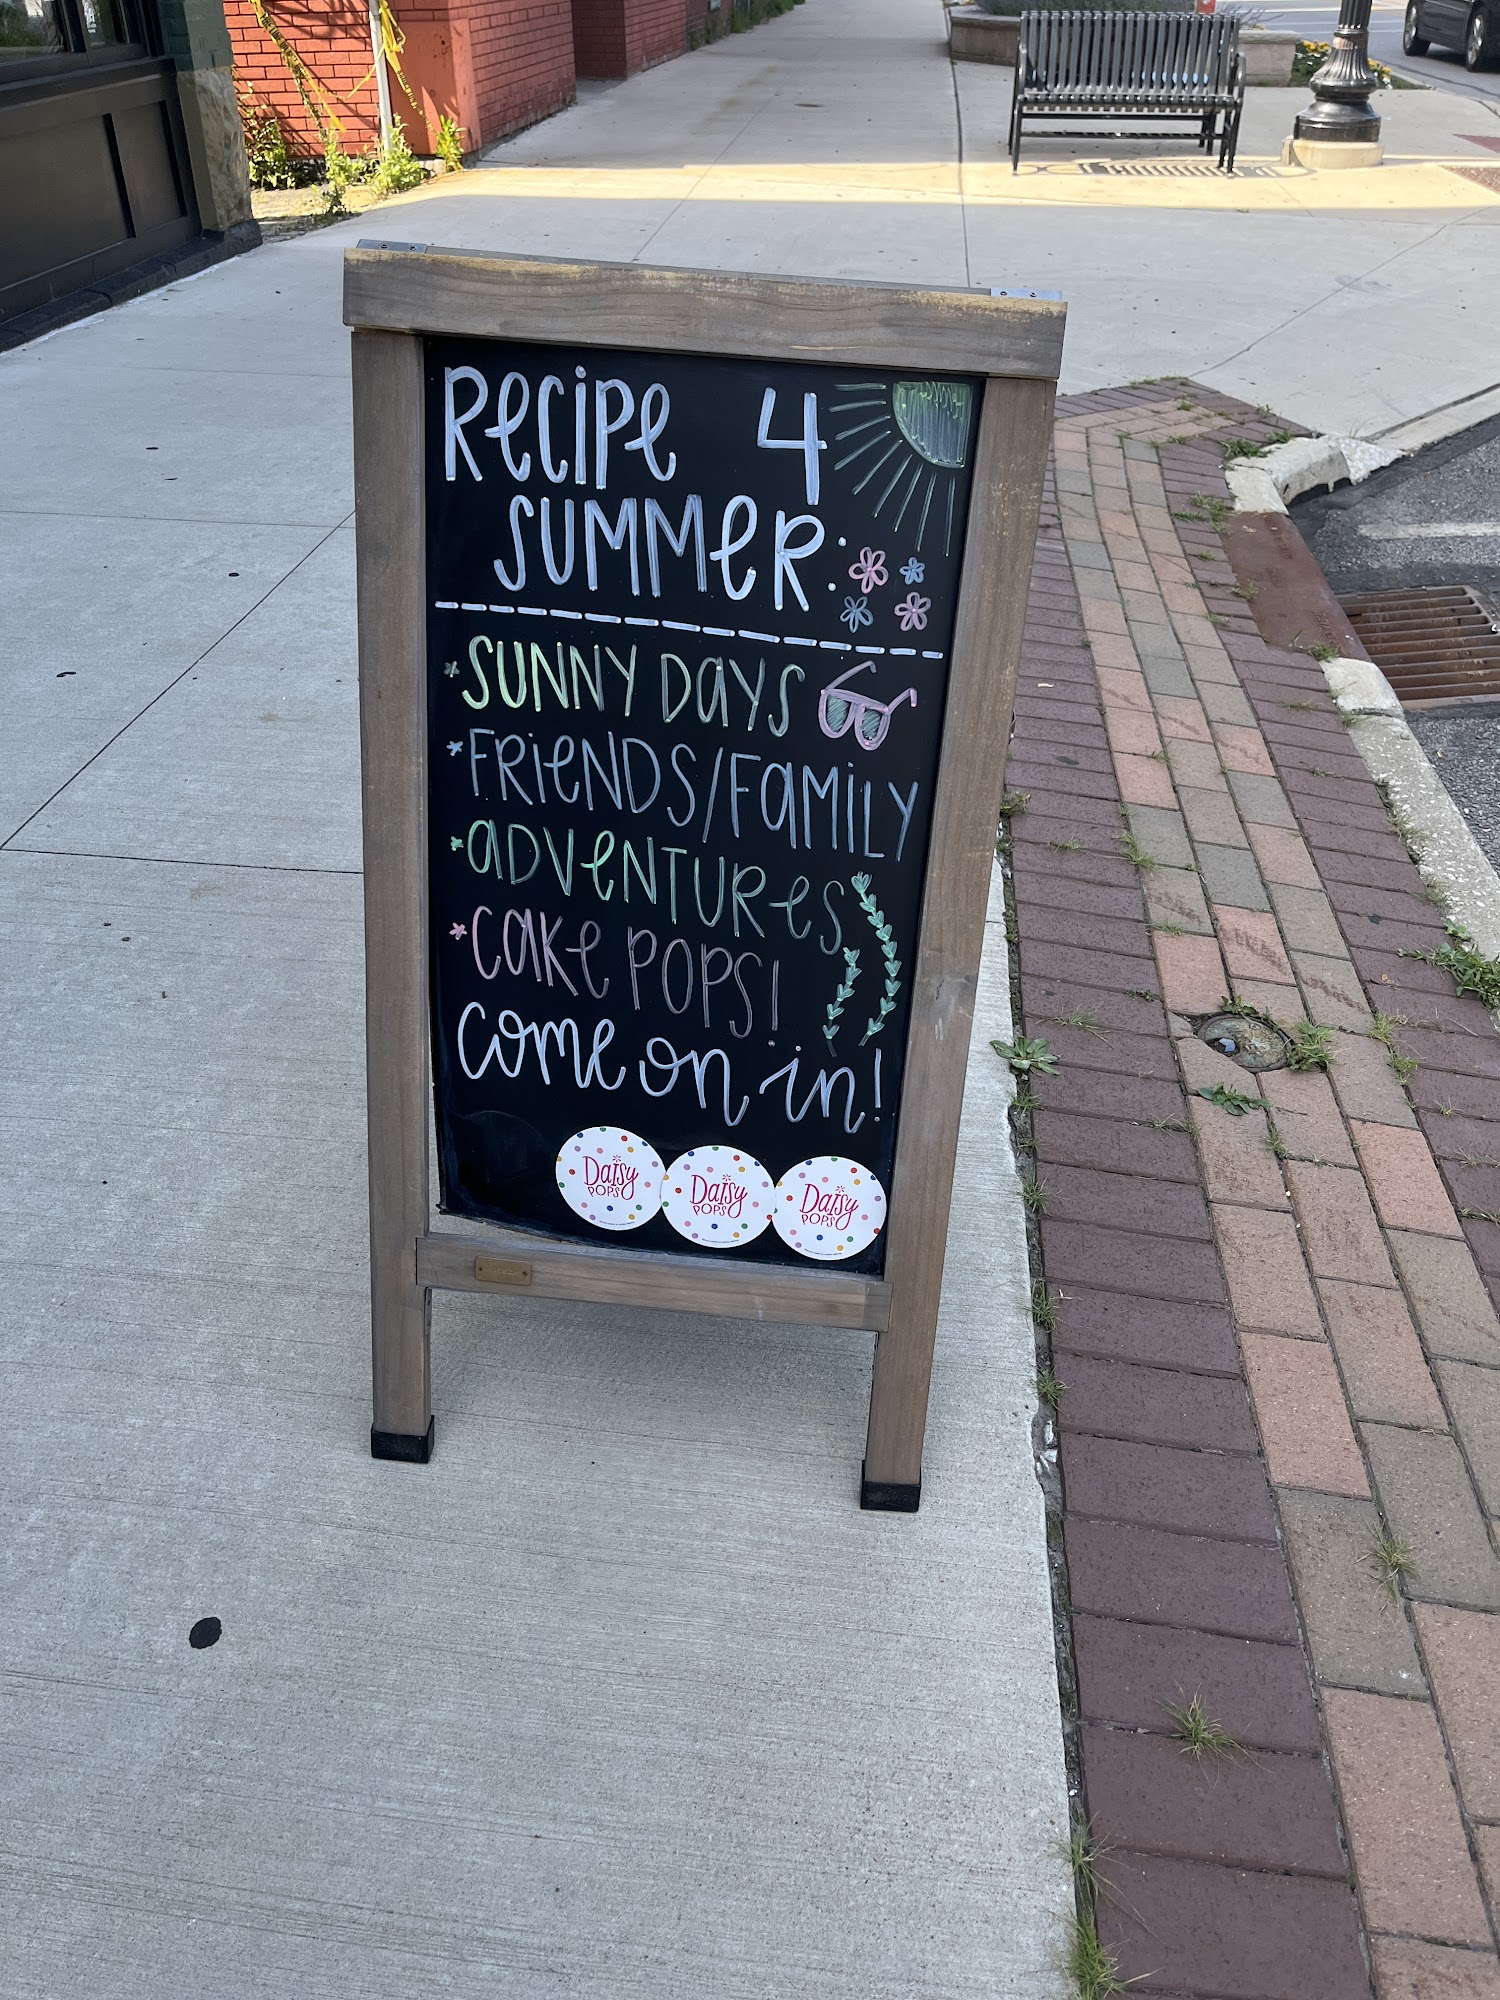 Recipe 4
Summer:
*Sunny Days
*Friends/Family
*Adventures
*Cake Pops!
Come on in!
Daisy
POPS
Daisy
POPS
Daisy
POPS